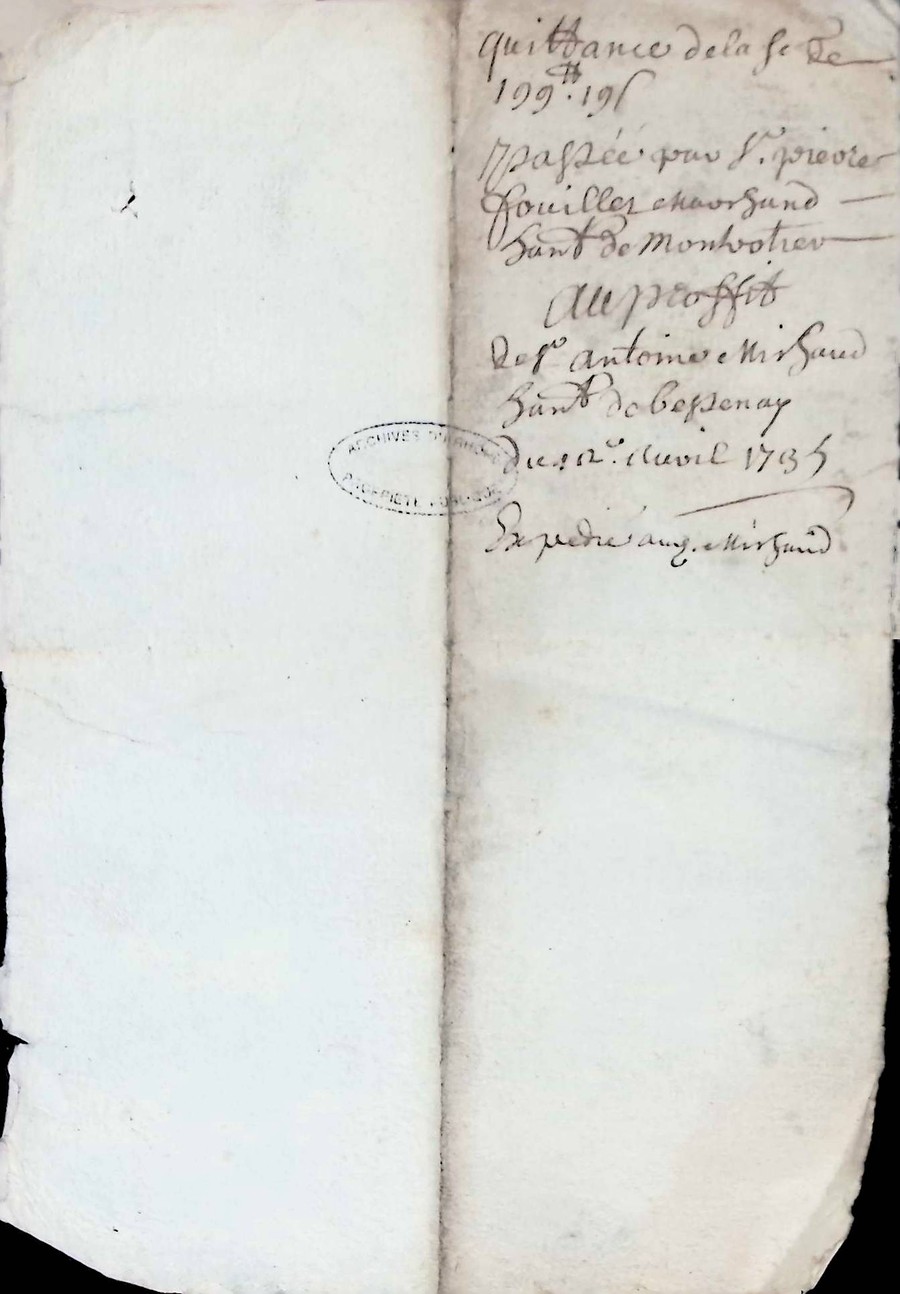 quittance de la so^e de
199^tt. 19s
passée par s^r. pierre
ffouillet marchand
hant de Montrotier
au proffit
de s^r antoine Michaud
hant de bessenay
du 12^e. avril 1735
Expedié aud. Michaud
ARCHIVES DU RHÔNE
PROPRIÉTÉ PUBLIQUE